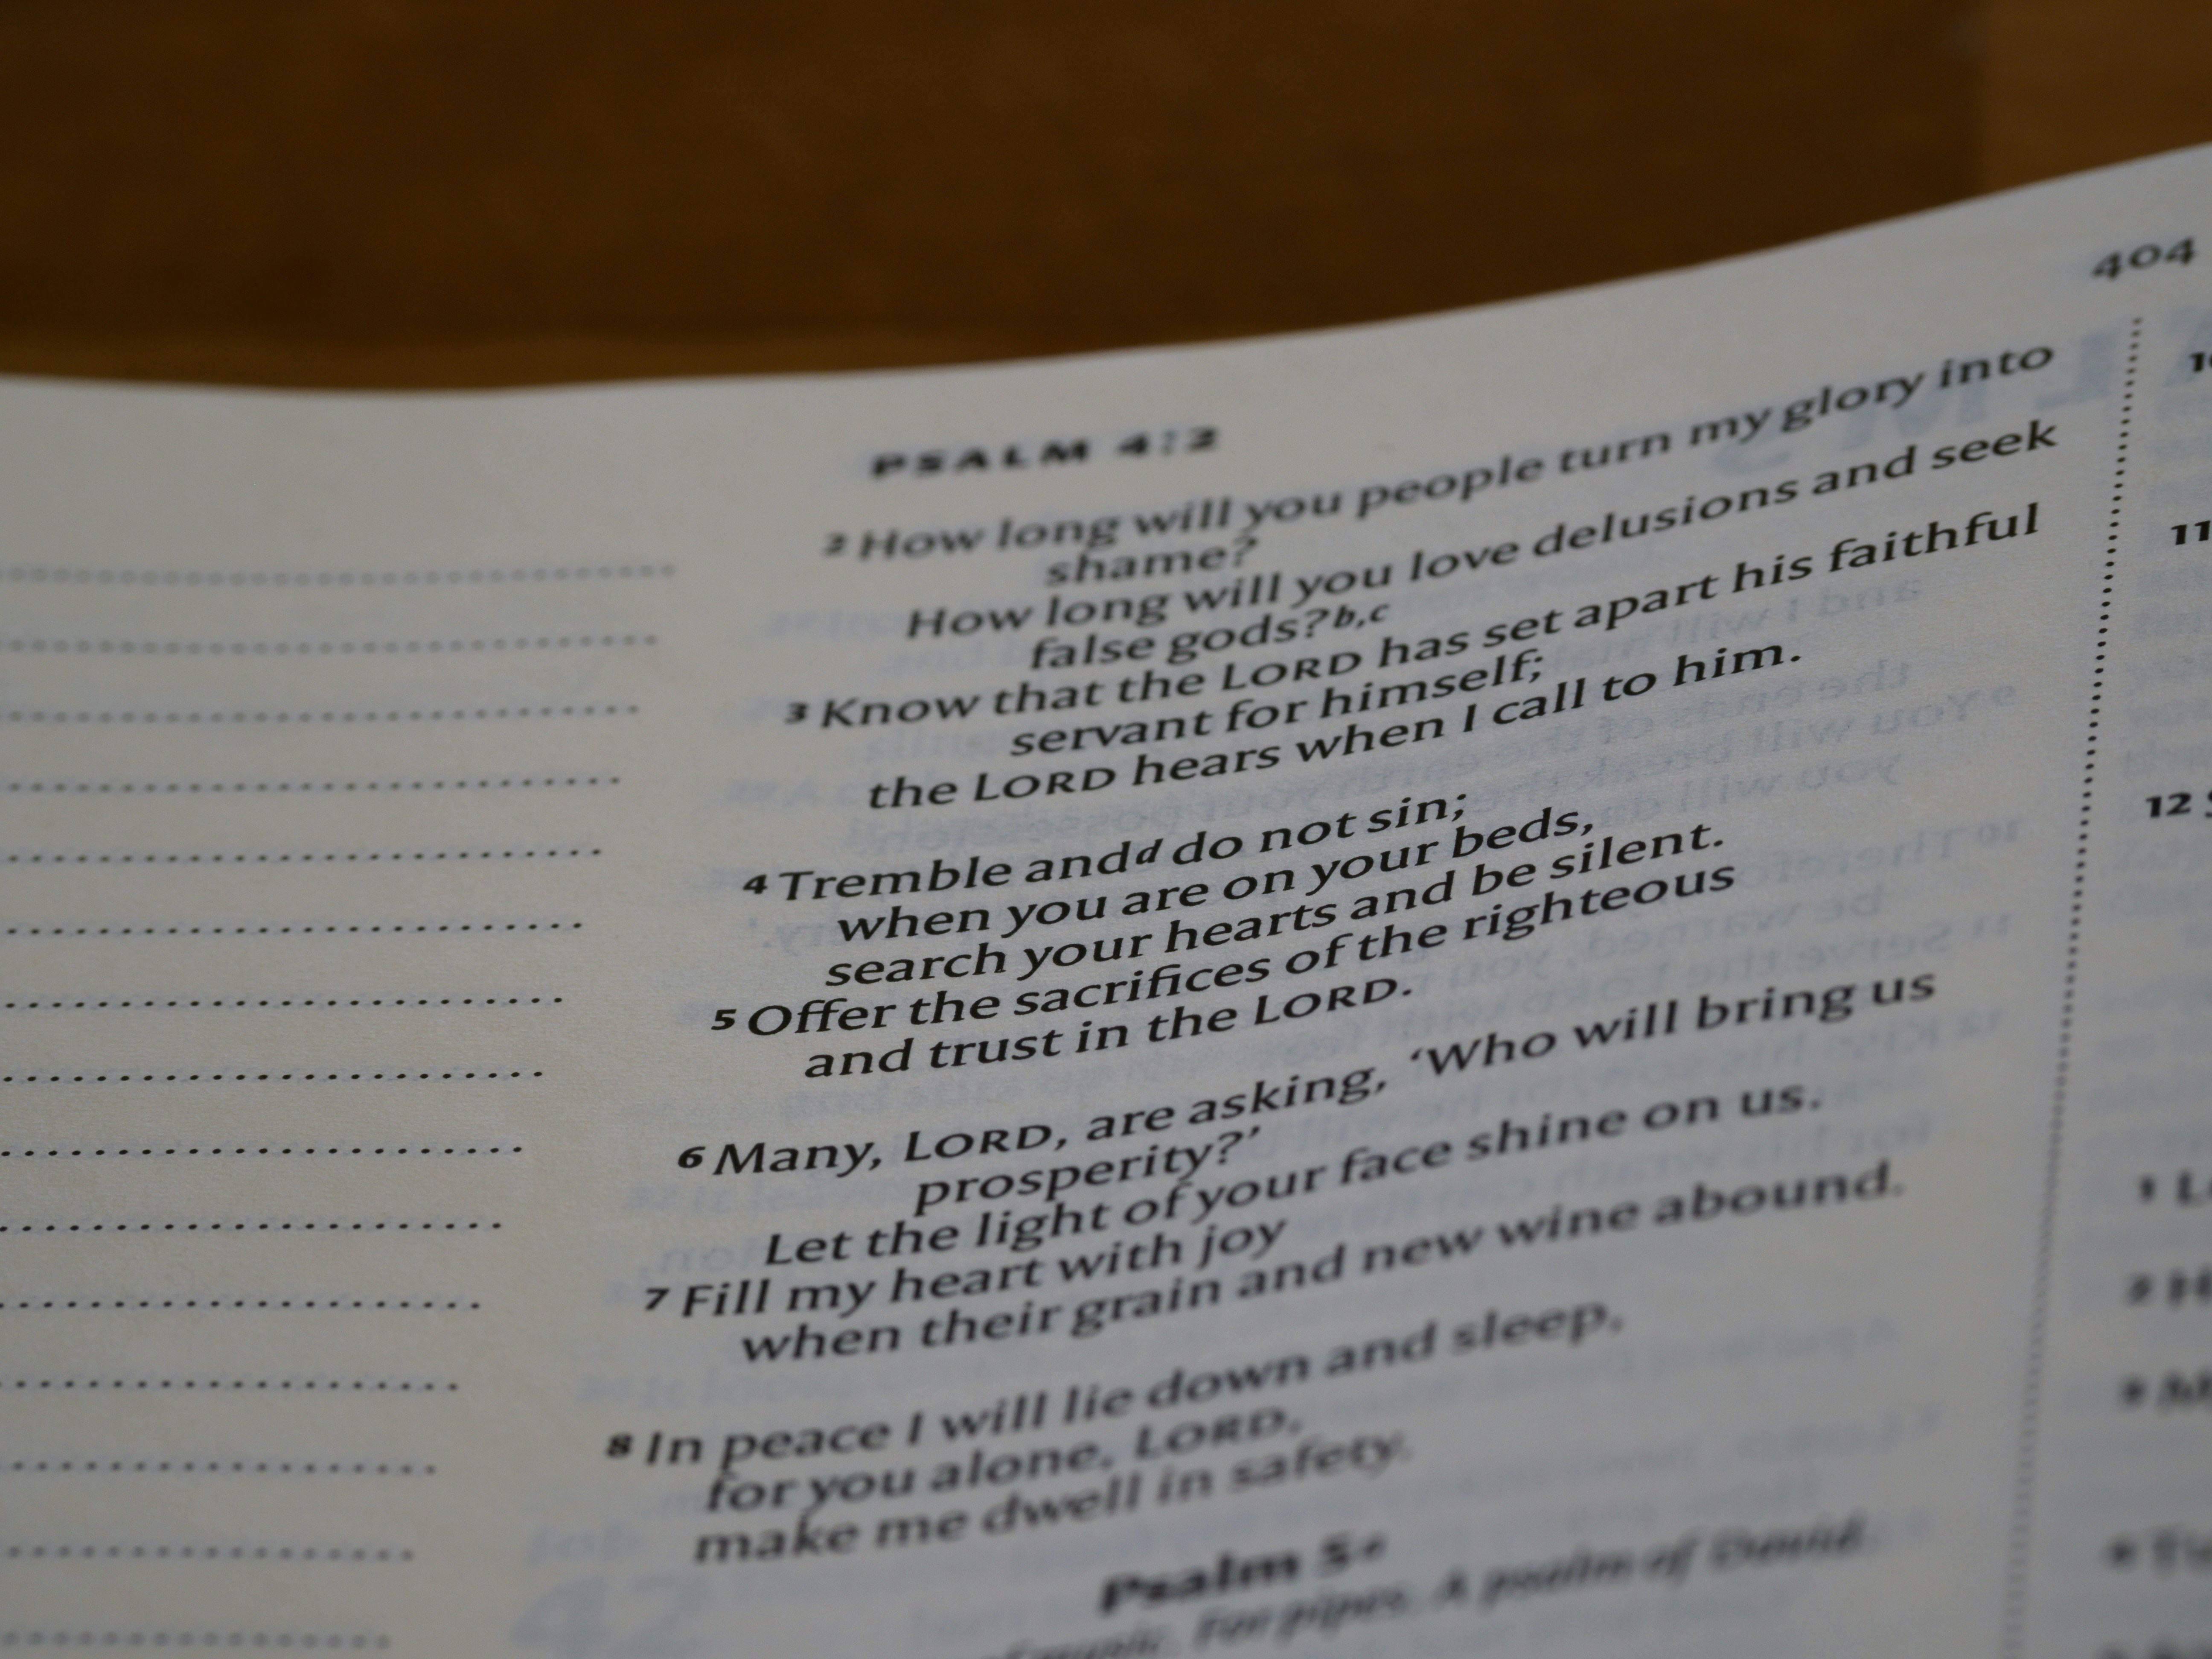 404
PSALM 4:2
2 How long will you people turn my glory into
shame?
How long will you love delusions and seek
false gods?b,c
3 Know that the LORD has set apart his faithful
servant for himself;
the LORD hears when I call to him.
4 Tremble and d do not sin;
when you are on your beds,
search your hearts and be silent.
5 Offer the sacrifices of the righteous
and trust in the LORD.
6 Many, LORD, are asking, ‘Who will bring us
prosperity?’
Let the light of your face shine on us.
7 Fill my heart with joy
when their grain and new wine abound.
8 In peace I will lie down and sleep,
for you alone, LORD,
make me dwell in safety.
Psalm 5
music. For pipes. A psalm of David.
11
12
1
2 H